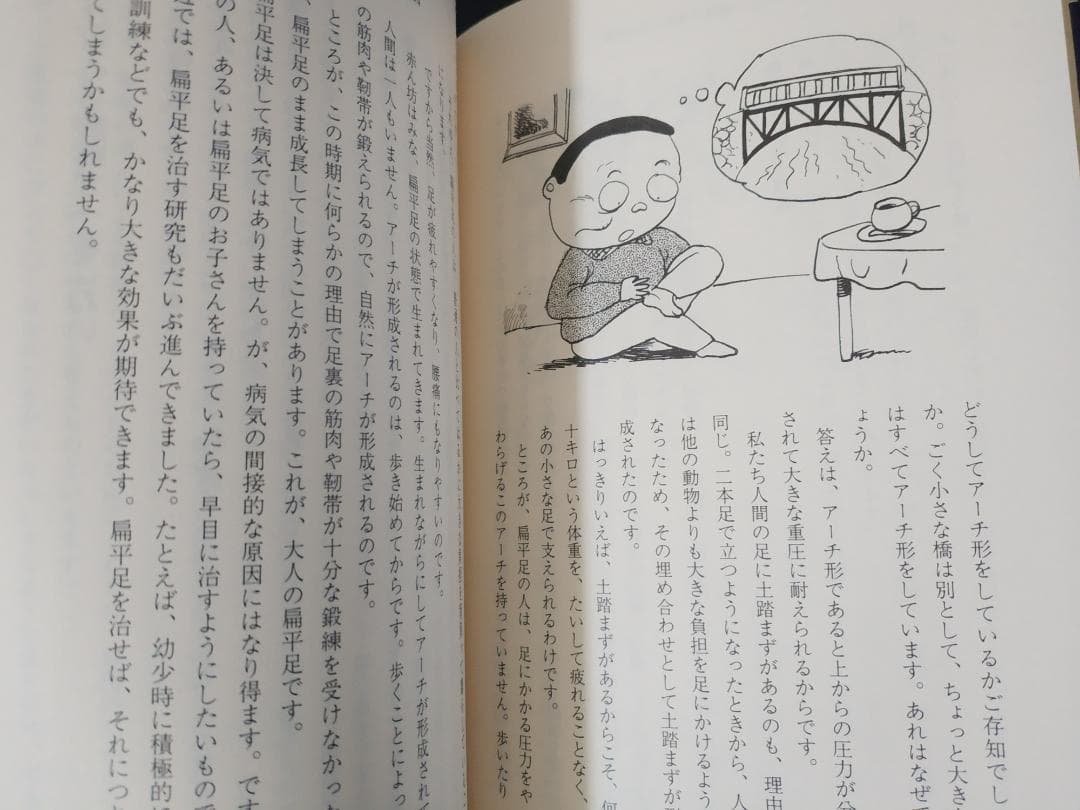 どうしてアーチ形をしているかご存知でし
か。ごく小さな橋は別として、ちょっと大き
はすべてアーチ形をしています。あれはなぜで
ょうか。
答えは、アーチ形であると上からの圧力が分
されて大きな重圧に耐えられるからです。
私たち人間の足に土踏まずがあるのも、理由
同じ。二本足で立つようになったときから、人
は他の動物よりも大きな負担を足にかけるよう
なったため、その埋め合わせとして土踏まずが
成されたのです。
はっきりいえば、土踏まずがあるからこそ、何
十キロという体重を、たいして疲れることなく、
あの小さな足で支えられるわけです。
ところが、扁平足の人は、足にかかる圧力をや
わらげるこのアーチを持っていません。歩いたり
になります。
ですから当然、足が疲れやすくなり、腰痛にもなりやすいのです。
赤ん坊はみな、扁平足の状態で生まれてきます。生まれながらにしてアーチが形成されて
人間は一人もいません。アーチが形成されるのは、歩き始めてからです。歩くことによっ
の筋肉や靭帯が鍛えられるので、自然にアーチが形成されるのです。
ところが、この時期に何らかの理由で足裏の筋肉や靭帯が十分な鍛練を受けなかっ
、扁平足のまま成長してしまうことがあります。これが、大人の扁平足です。
扁平足は決して病気ではありません。が、病気の間接的な原因にはなり得ます。です
の人、あるいは扁平足のお子さんを持っていたら、早目に治すようにしたいもので
では、扁平足を治す研究もだいぶ進んできました。たとえば、幼少時に積極的に
訓練などでも、かなり大きな効果が期待できます。扁平足を治せば、それにつ
てしまうかもしれません。